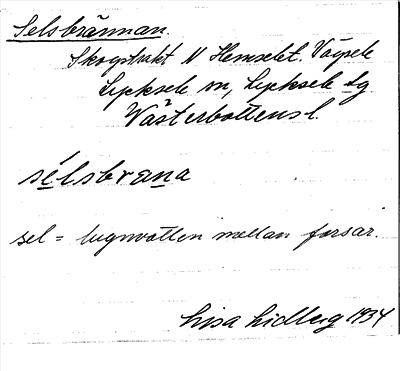 Selsbrännan.
Skogstrakt N Hemselet. Vägsele
Lycksele sn, Lycksele tg
Västerbottens l.
sélsbrɛna
sel = lugnvatten mellan forsar.
Lisa Lidberg 1934